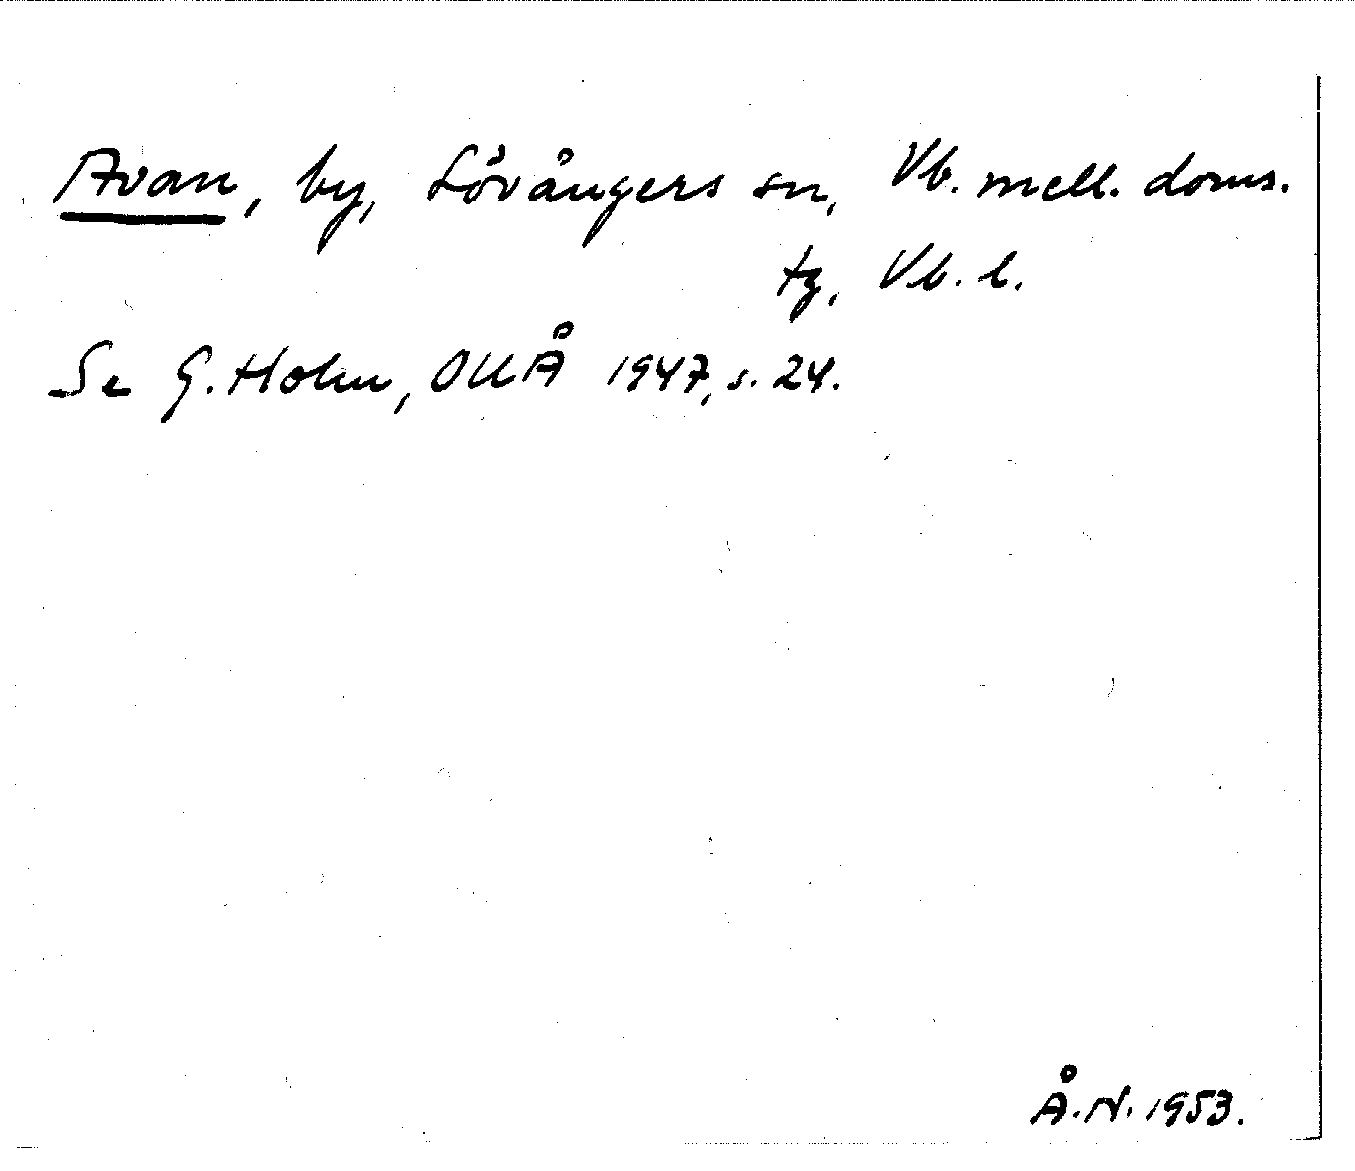 Avan, by, Lövångers sn, Vb. mell. doms.
tg, Vb. l.
Se G. Holm, OUÅ 1947, s. 24.
Å.N. 1953.